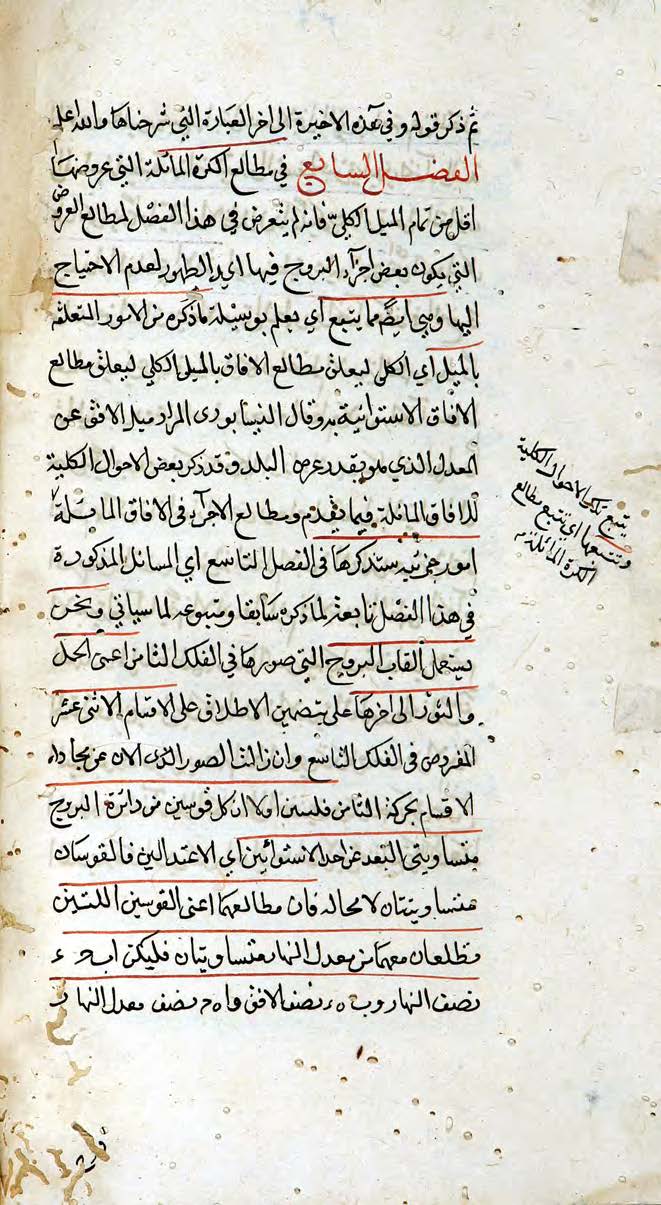 ثم ذكر قوله وفي هذه الاخيرة الى اخر العبارة التي شرحناها والله اعلم
الفصل السابع في مطالع الكرة المائلة التي عروضها
اقل من تمام الميل الكلي فانه لم يتعرض في هذا الفصل لمطالع العروض
التي يكون بعض اجزآء البروج فيها ابدي الظهور لعدم الاحتياج
اليها وهي ايضا مما يتبع اي يعلم بوسيلة ما ذكره من الامور المتعلقة
بالميل اي الكلي ليعلق مطالع الافاق بالميل الكلي ليعلق مطالع
الافاق الاستوائية به وقال النيسابوري المراد ميل الافق عن
المعدل الذي هو بقدر عرض البلد وقد ذكر بعض الاحوال الكلية
للافاق المائلة فيما يقدم ومطالع الاجزآء في الافاق المائلة
امور جزئية ستذكرها في الفصل التاسع اي المسائل المذكورة
في هذا الفصل تابعة لما ذكره سابقا ومتبوعه لما سياتي ونحن
نستعمل القاب البروج التي صورها في الفلك الثامن اعني الحمل
والثور الى اخرها على تضمين الاطلاق على الاقسام الاثنى عشر
المفروض في الفلك التاسع وان زالت الصور الذى الان عن محاذاه
الاقسام بحركة الثامن فلنبين اولا ان كل قوسين من دائرة البروج
متساويتي البعد عن احد الاستوائين اي الاعتدالين فالقوسان
متساويتان لا محاله فان مطالعهما اعنى القوسين اللتين
تطلعان معهما من معدل النهار متساويتان فليكن ا ب ح ء
نصف النهار و ب ه ء نصف الافق و ا ه ح نصف معدل النهار و
يتبع تلك الاحوال الكلية
وتتبعها اي يتبع مطالع
الكرة المائلة